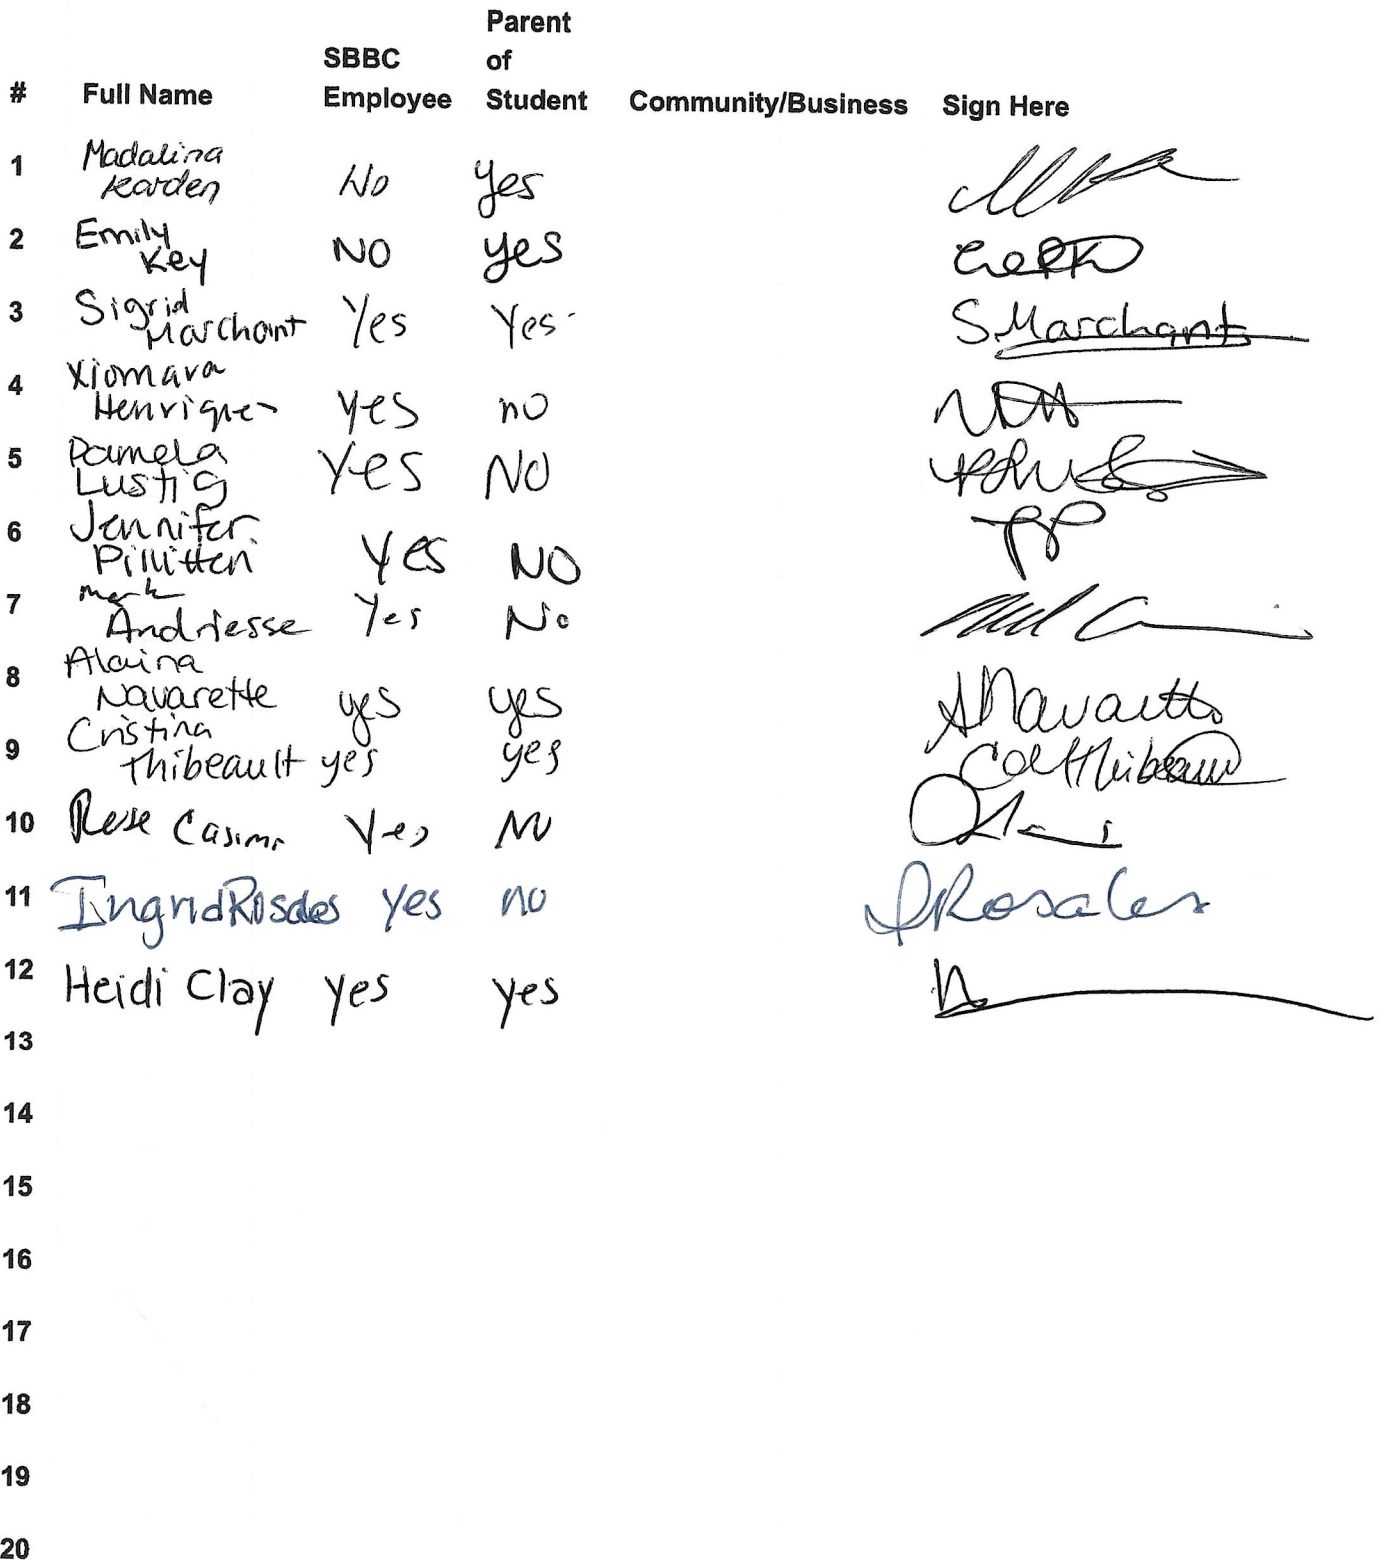 Parent
SBBC of
# Full Name Employee Student Community/Business Sign Here
1 Madalina
Karden No Yes
2 Emily
Key NO yes
3 Sigrid
Marchant Yes Yes S Marchant
4 Xiomara
Henriquez yes no
5 Pamela
Lustig Yes NO
6 Jennifer
Pillitteri Yes NO
7 Mark
Andriesse Yes No
8 Alaina
Navarette yes yes ANavarette
9 Cristina
Thibeault yes yes
10 Rose Casimir Yes No
11 Ingrid Rosales yes no IRosales
12 Heidi Clay yes yes
13
14
15
16
17
18
19
20